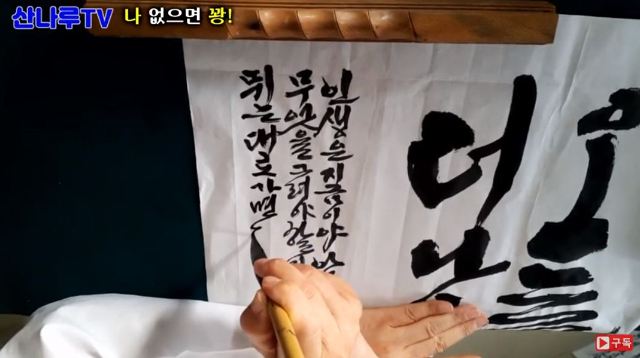 산나루TV 나 없으면 꽝!
오늘
더
인생은 지금이야
무엇을 그려야 할
뛰는 대로 가면
구독